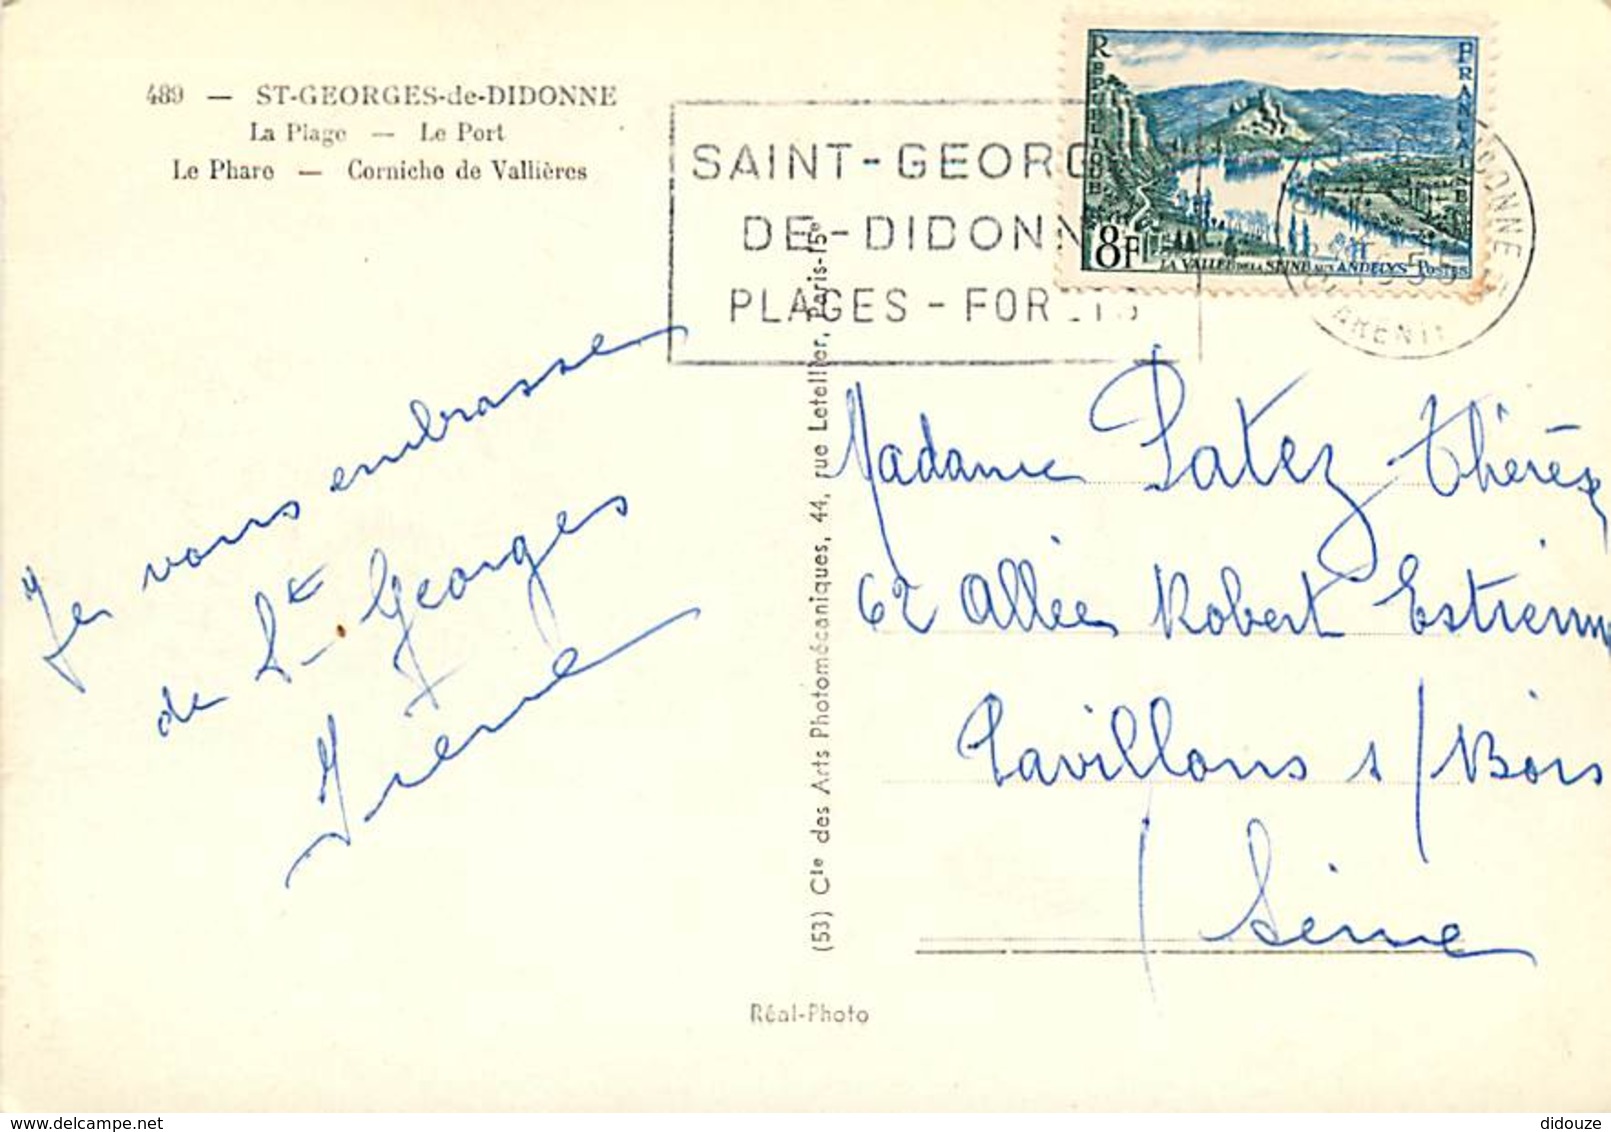 489 — ST-GEORGES-de-DIDONNE
La Plage — Le Port
Le Phare — Corniche de Vallières
SAINT-GEORG
DE-DIDONN
PLAGES - FOR
RÉPUBLIQUE
FRANÇAISE
8F
LA VALLÉE DE LA SEINE AUX ANDELYS POSTES
DIDONNE
Je vous embrasse
de St Georges
Irène
(53) Cie des Arts Photomécaniques, 44, rue Letellier, Paris-15e
Madame Patez Thérèse
62 Allée Robert Estienne
Pavillons s/Bois
Seine
Réal-Photo
delcampe.net
didouze